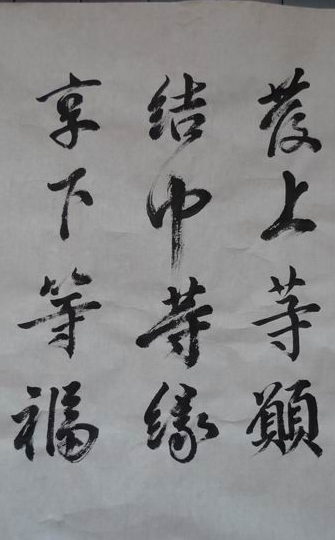 發上等願
結中等緣
享下等福